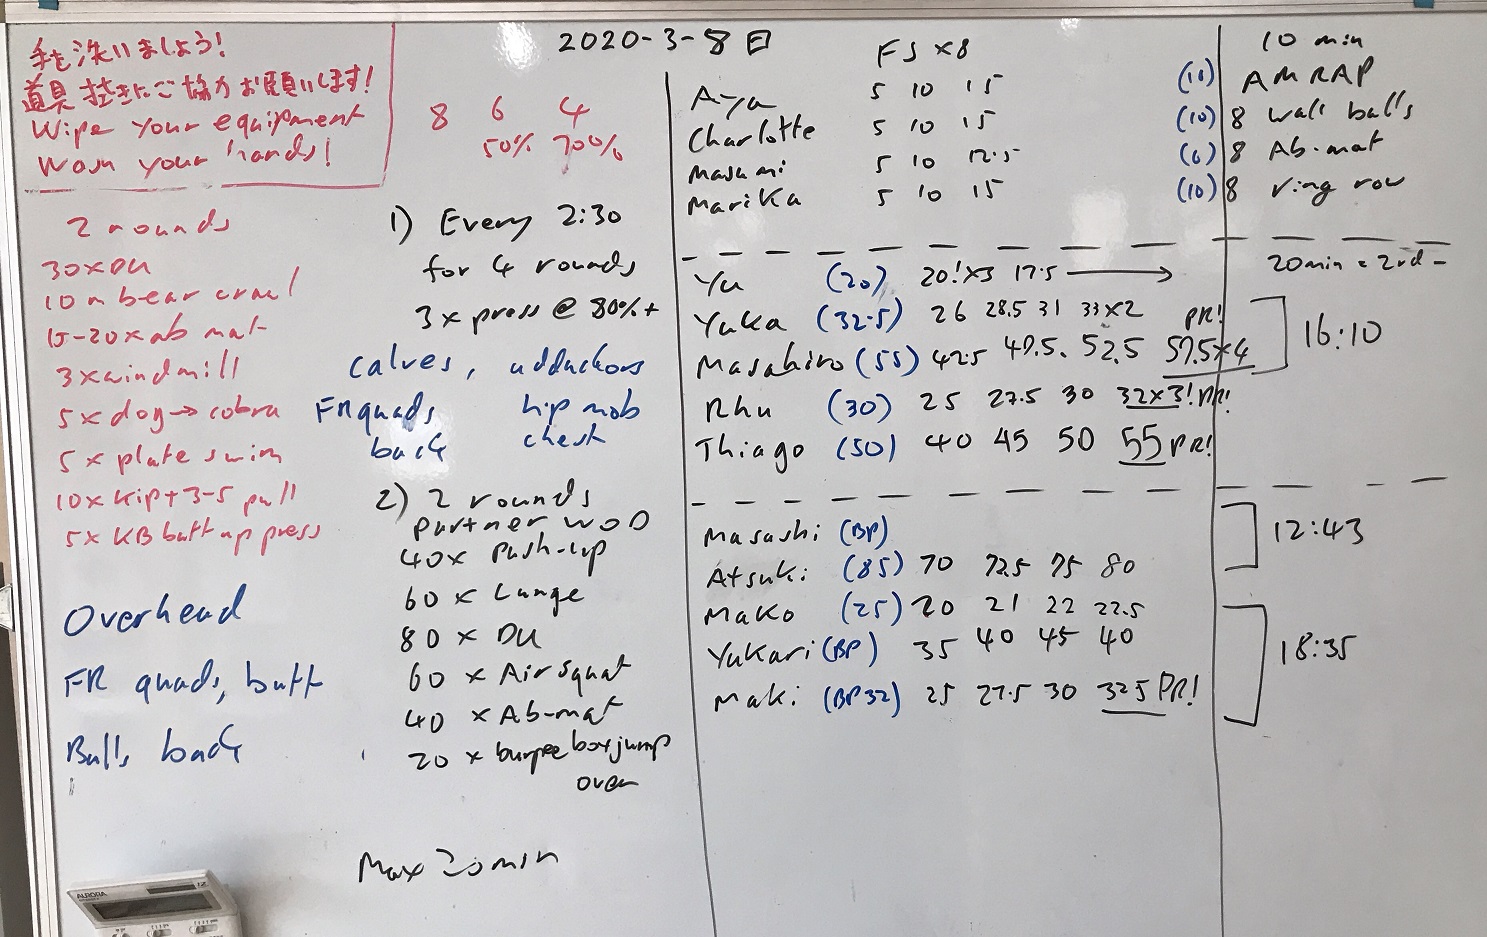 2020-3-8 日
手を洗いましょう!
道具拭きにご協力お願いします!
Wipe your equipment
Wash your hands!
8 6 4
50% 70%
2 rounds
30xDU
10m bear crawl
15-20x ab mat
3xwindmill
5x dog→cobra
5x plate swim
10x kip+3-5 pull
5x KB butt up press
Overhead
FR quads, butt
Balls back
1) Every 2:30
for 4 rounds
3x press @ 80%+
calves, adductors
FR quads, hip mob
back chest
2) 2 rounds
partner WOD
40x Push-up
60 x Lunge
80 x DU
60 x Air squat
40 x Ab-mat
20 x burpee box jump
over
Max 20min
FS x8
Aya 5 10 15
Charlotte 5 10 15
Masumi 5 10 12.5
Marika 5 10 15
Yu (20) 20!x3 17.5 →
Yuka (32.5) 26 28.5 31 33x2
Masahiro (55) 42.5 47.5. 52.5 57.5x4 PR!
Rhu (30) 25 27.5 30 32x3! PR!
Thiago (50) 40 45 50 55 PR!
Masashi (BP)
Atsuki (85) 70 72.5 75 80
Mako (25) 20 21 22 22.5
Yukari (BP) 35 40 45 40
Maki (BP32) 25 27.5 30 32.5 PR!
10 min
(10) AMRAP
(10) 8 wall balls
(6) 8 Ab-mat
(10) 8 ring row
20min = 2rd -
16:10
12:43
18:35
AURORA